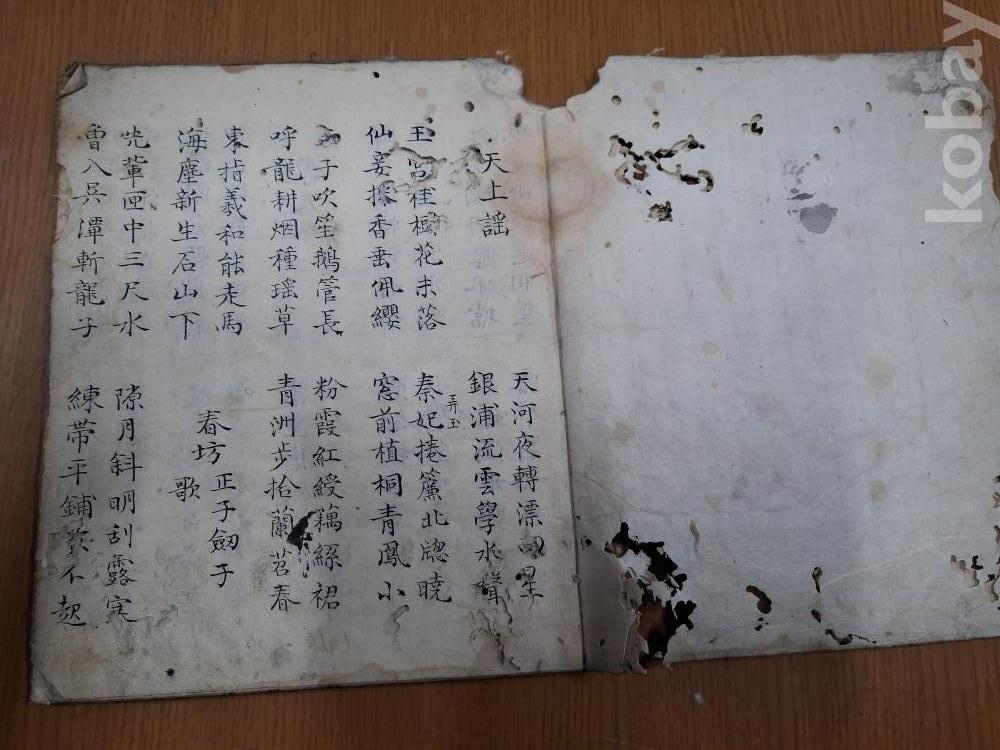 天上謠
天河夜轉漂回星
銀浦流雲學水聲
玉宮桂樹花未落
仙妾採香垂佩纓
秦妃捲簾北牕曉
弄玉
窓前植桐青鳳小
子吹笙鵝管長
呼龍耕烟種瑤草
粉霞紅綬藕絲裙
青洲步拾蘭苕春
東指羲和能走馬
海塵新生石山下
春坊正子劒子
歌
先輩匣中三尺水
曾入吳潭斬龍子
隙月斜明刮露寒
練帶平鋪吹不起
kobay